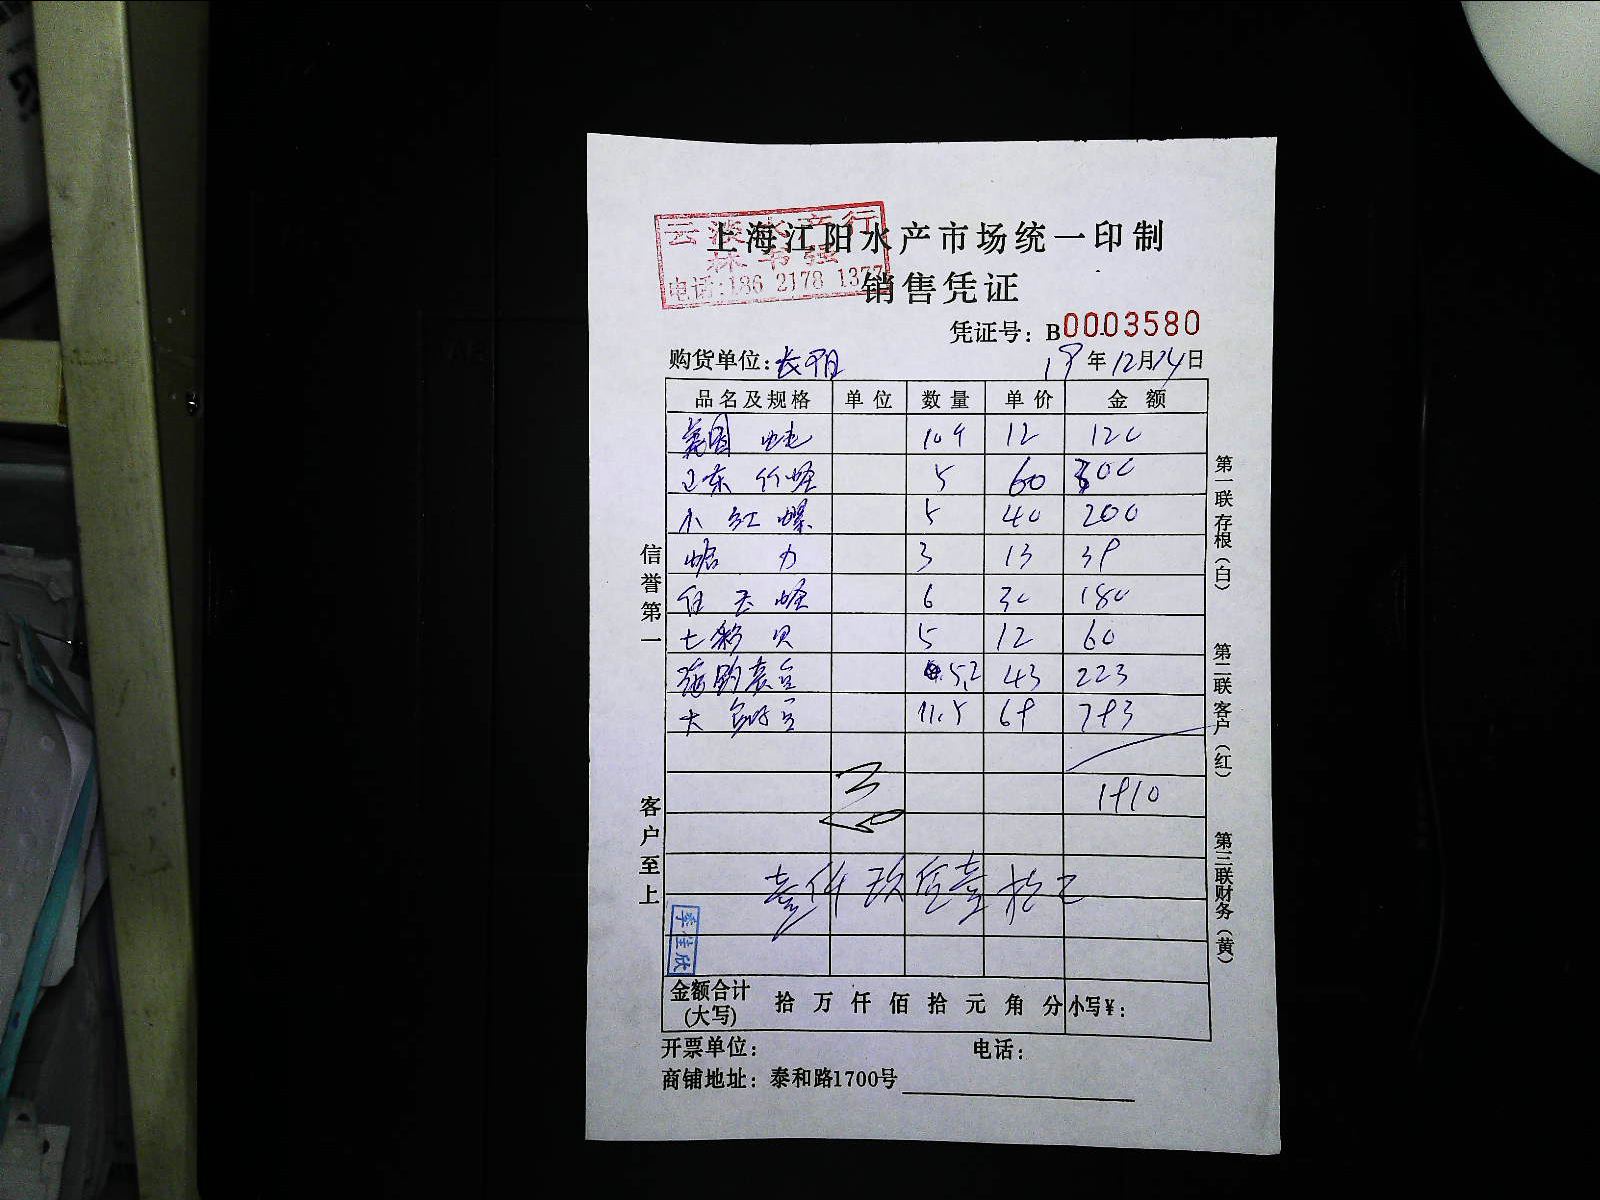 云淡水产行
电话:186 2178 1377
上海江阳水产市场统一印制
销售凭证
凭证号：B0003580
购货单位：长阳
19年12月14日
品名及规格 单位 数量 单价 金额
美国 蚝 10个 12 120
山东 竹蛏 5 60 300
小红螺 5 40 200
蛤 力 3 13 39
蛏 6 30 180
七彩贝 5 12 60
5.2 43 223
大 11.5 69 793
1910
壹仟玖佰壹拾元
李佳欣
金额合计(大写) 拾 万 仟 佰 拾 元 角 分 小写￥：
开票单位： 电话：
商铺地址：泰和路1700号
信誉第一
客户至上
第一联 存根（白）
第二联 客户（红）
第三联 财务（黄）